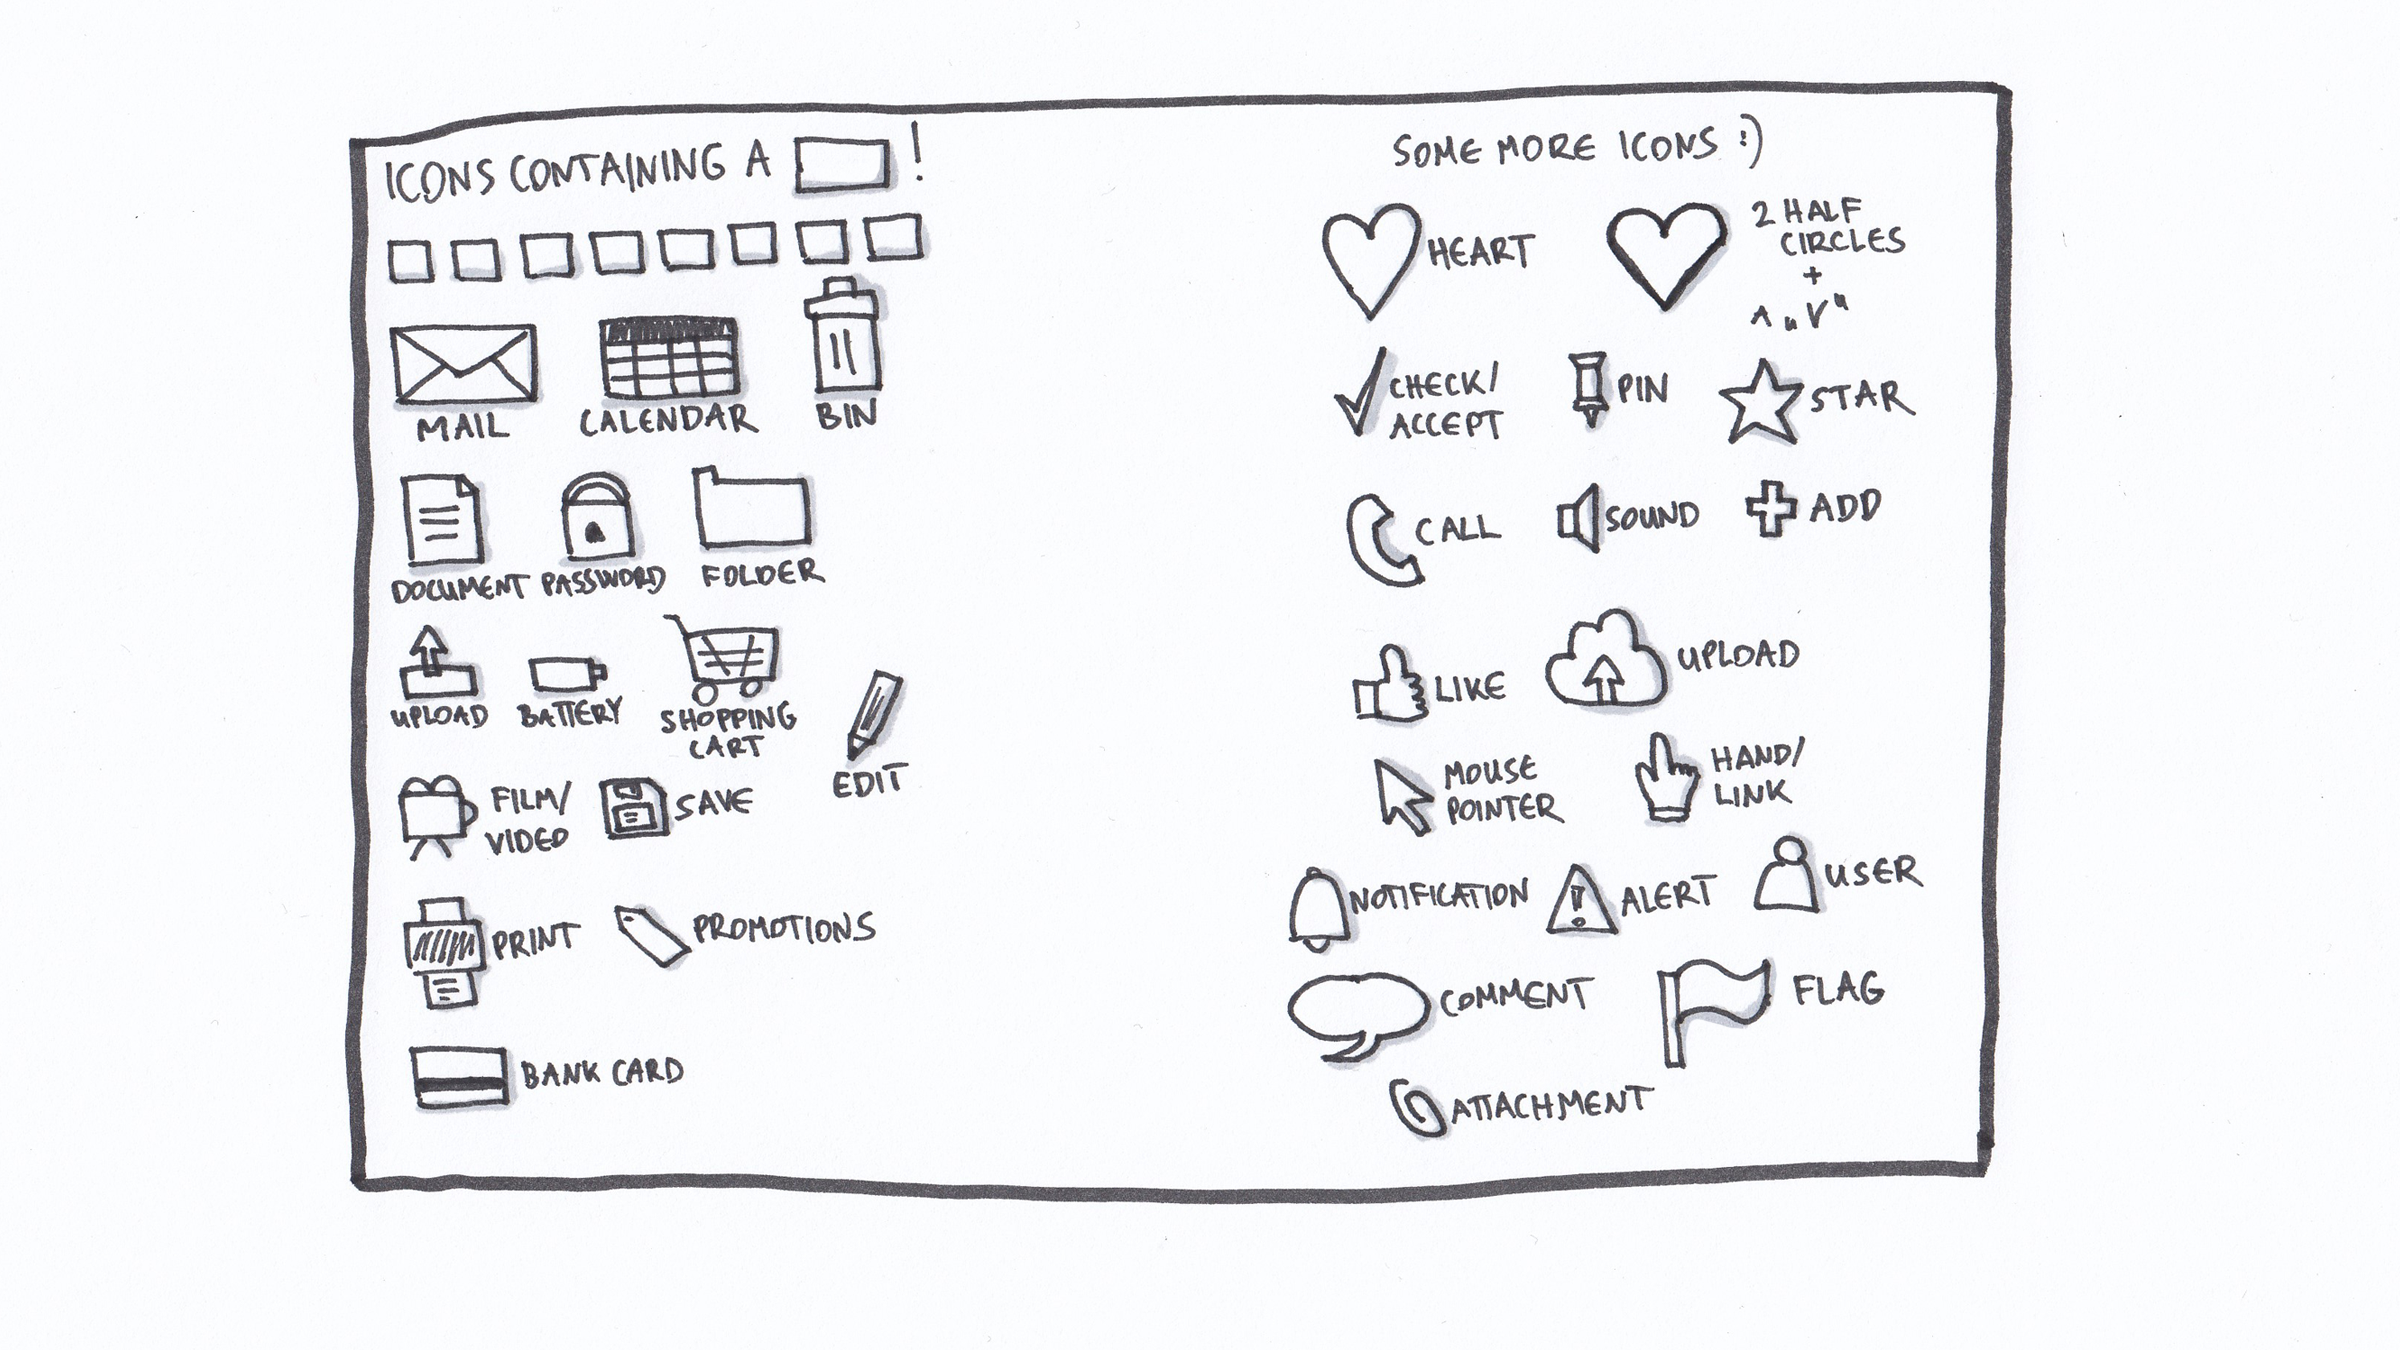 ICONS CONTAINING A !
MAIL
CALENDAR
BIN
DOCUMENT
PASSWORD
FOLDER
UPLOAD
BATTERY
SHOPPING
CART
EDIT
FILM/
VIDEO
SAVE
PRINT
PROMOTIONS
BANK CARD
SOME MORE ICONS :)
HEART
2 HALF
CIRCLES
+
A „V“
CHECK/
ACCEPT
PIN
STAR
CALL
SOUND
ADD
LIKE
UPLOAD
MOUSE
POINTER
HAND/
LINK
NOTIFICATION
!
ALERT
USER
COMMENT
FLAG
ATTACHMENT